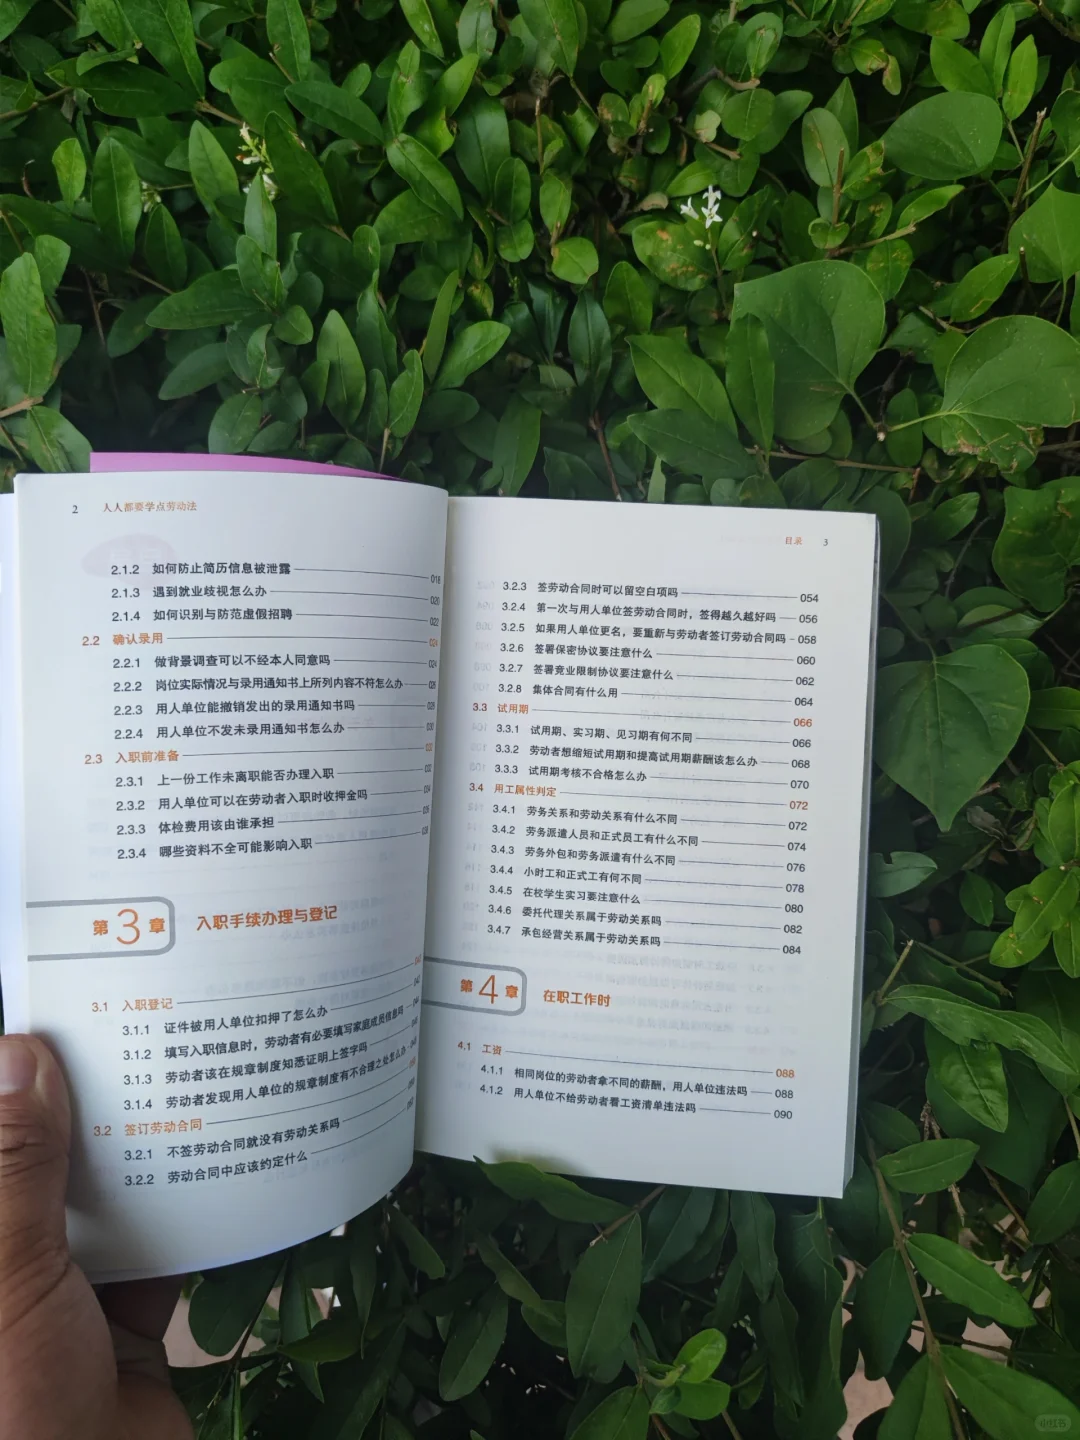 2 人人都要学点劳动法
2.1.2 如何防止简历信息被泄露 018
2.1.3 遇到就业歧视怎么办 020
2.1.4 如何识别与防范虚假招聘 022
2.2 确认录用 024
2.2.1 做背景调查可以不经本人同意吗 024
2.2.2 岗位实际情况与录用通知书上所列内容不符怎么办
2.2.3 用人单位能撤销发出的录用通知书吗
2.2.4 用人单位不发未录用通知书怎么办 030
2.3 入职前准备
2.3.1 上一份工作未离职能否办理入职
2.3.2 用人单位可以在劳动者入职时收押金吗
2.3.3 体检费用该由谁承担
2.3.4 哪些资料不全可能影响入职
第3章 入职手续办理与登记
3.1 入职登记
3.1.1 证件被用人单位扣押了怎么办
3.1.2 填写入职信息时,劳动者有必要填写家庭成员信息吗
3.1.3 劳动者该在规章制度知悉证明上签字吗
3.1.4 劳动者发现用人单位的规章制度有不合理之处怎么办
3.2 签订劳动合同
3.2.1 不签劳动合同就没有劳动关系吗
3.2.2 劳动合同中应该约定什么
目录 3
3.2.3 签劳动合同时可以留空白项吗 054
3.2.4 第一次与用人单位签劳动合同时,签得越久越好吗 056
3.2.5 如果用人单位更名,要重新与劳动者签订劳动合同吗 058
3.2.6 签署保密协议要注意什么 060
3.2.7 签署竞业限制协议要注意什么 062
3.2.8 集体合同有什么用 064
3.3 试用期 066
3.3.1 试用期、实习期、见习期有何不同 066
3.3.2 劳动者想缩短试用期和提高试用期薪酬该怎么办 068
3.3.3 试用期考核不合格怎么办 070
3.4 用工属性判定 072
3.4.1 劳务关系和劳动关系有什么不同 072
3.4.2 劳务派遣人员和正式员工有什么不同 074
3.4.3 劳务外包和劳务派遣有什么不同 076
3.4.4 小时工和正式工有何不同 078
3.4.5 在校学生实习要注意什么 080
3.4.6 委托代理关系属于劳动关系吗 082
3.4.7 承包经营关系属于劳动关系吗 084
第4章 在职工作时
4.1 工资 088
4.1.1 相同岗位的劳动者拿不同的薪酬,用人单位违法吗 088
4.1.2 用人单位不给劳动者看工资清单违法吗 090
小红书